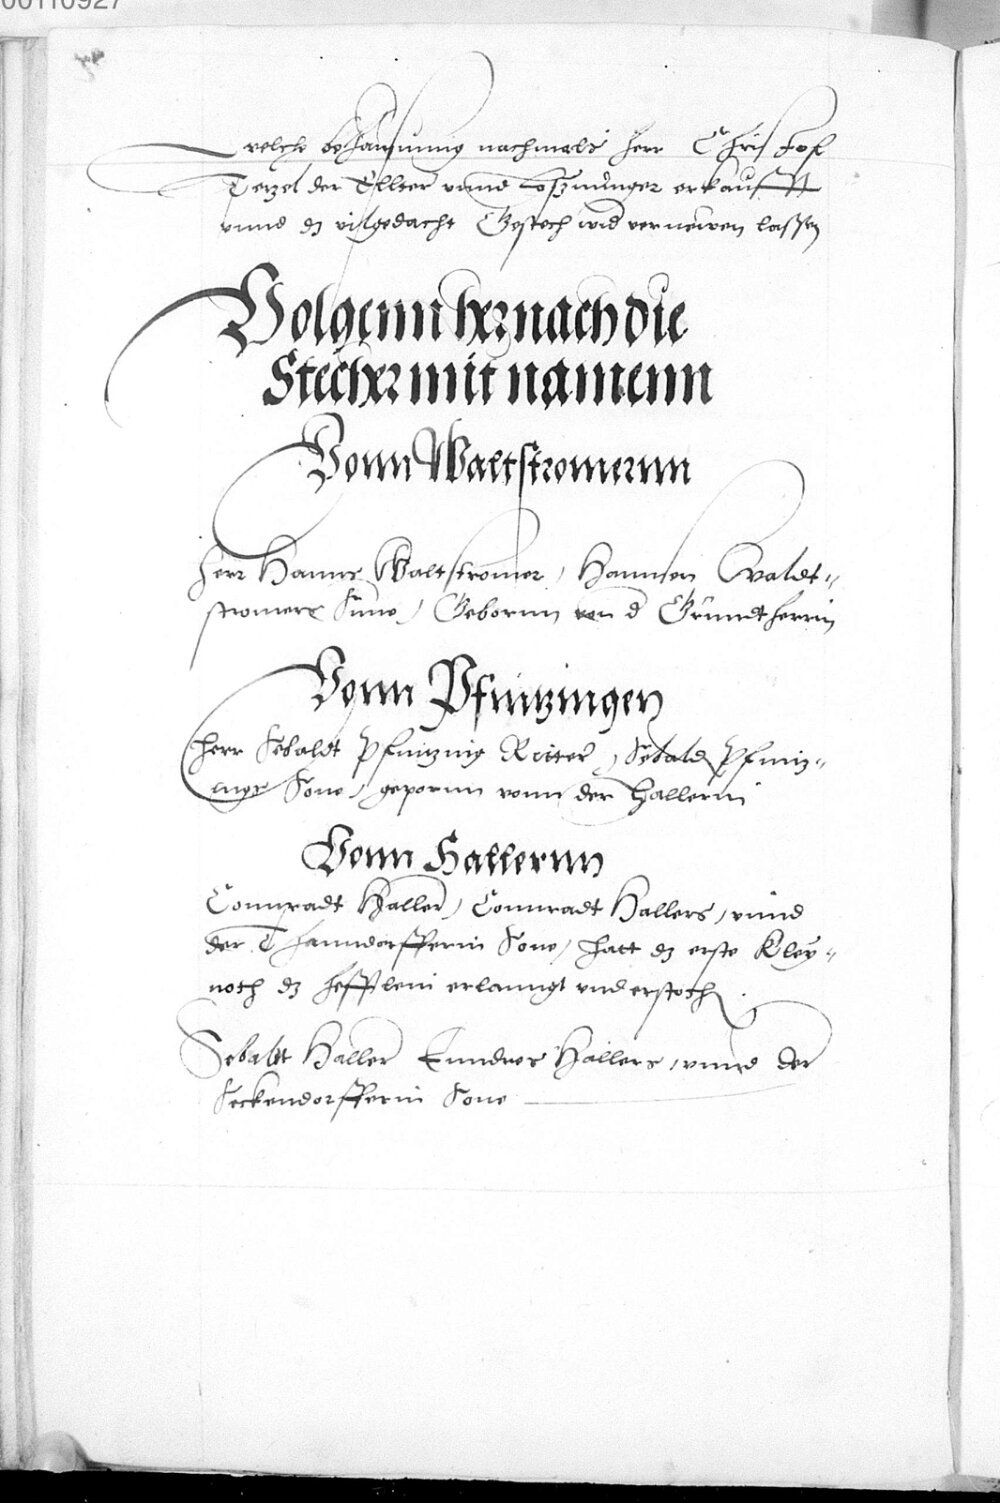 00110927
welche behausunng nachmals herr Christof
Tetzel der Ellter vnnd Loßunger erkaufft
vnnd dz vilgedacht Gestech wid vernewen lassen
Volgenn hernach die
Stecher mit namenn
Vonn Waltstromernn
Herr Hanns Waltstromer, Hannsen Waldt=
stromers Sune, Gebornn von d Grundtherrin
Vonn Pfintzingen
Herr Sebaldt Pfintzing Ritter, Sebald Pfintz=
ings Sone, gepornn vonn der Hallerin
Vonn Hallernn
Connradt Haller, Connradt Hallers, vnnd
der Thanndorfferin Sone, hatt dz erste Kley=
noth dz hefftlein erlanngt vnd erstoch
Sebaldt Haller Enndres Hallers, vnnd der
Seckendorfferin Sone